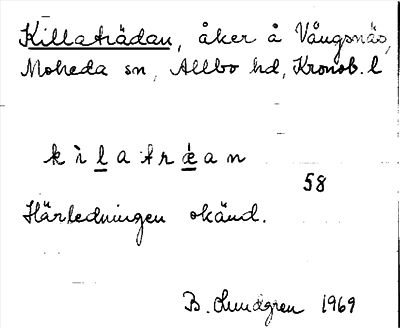 Killaträdan, åker å Vångsnäs,
Moheda sn, Allbo hd, Kronob. l
k ì l a t r æ̀ a n
58
Härledningen okänd.
B. Lundgren 1969